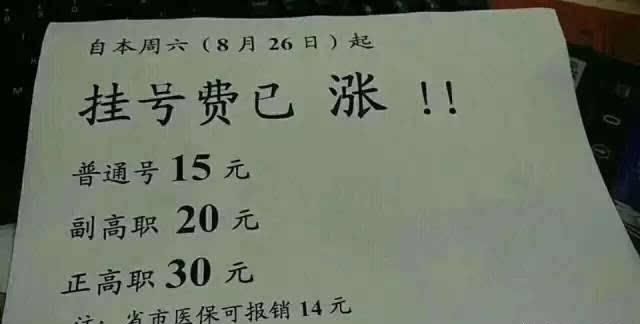 自本周六（8月26日）起
挂号费已 涨 !!
普通号 15 元
副高职 20 元
正高职 30 元
注：省市医保可报销 14 元